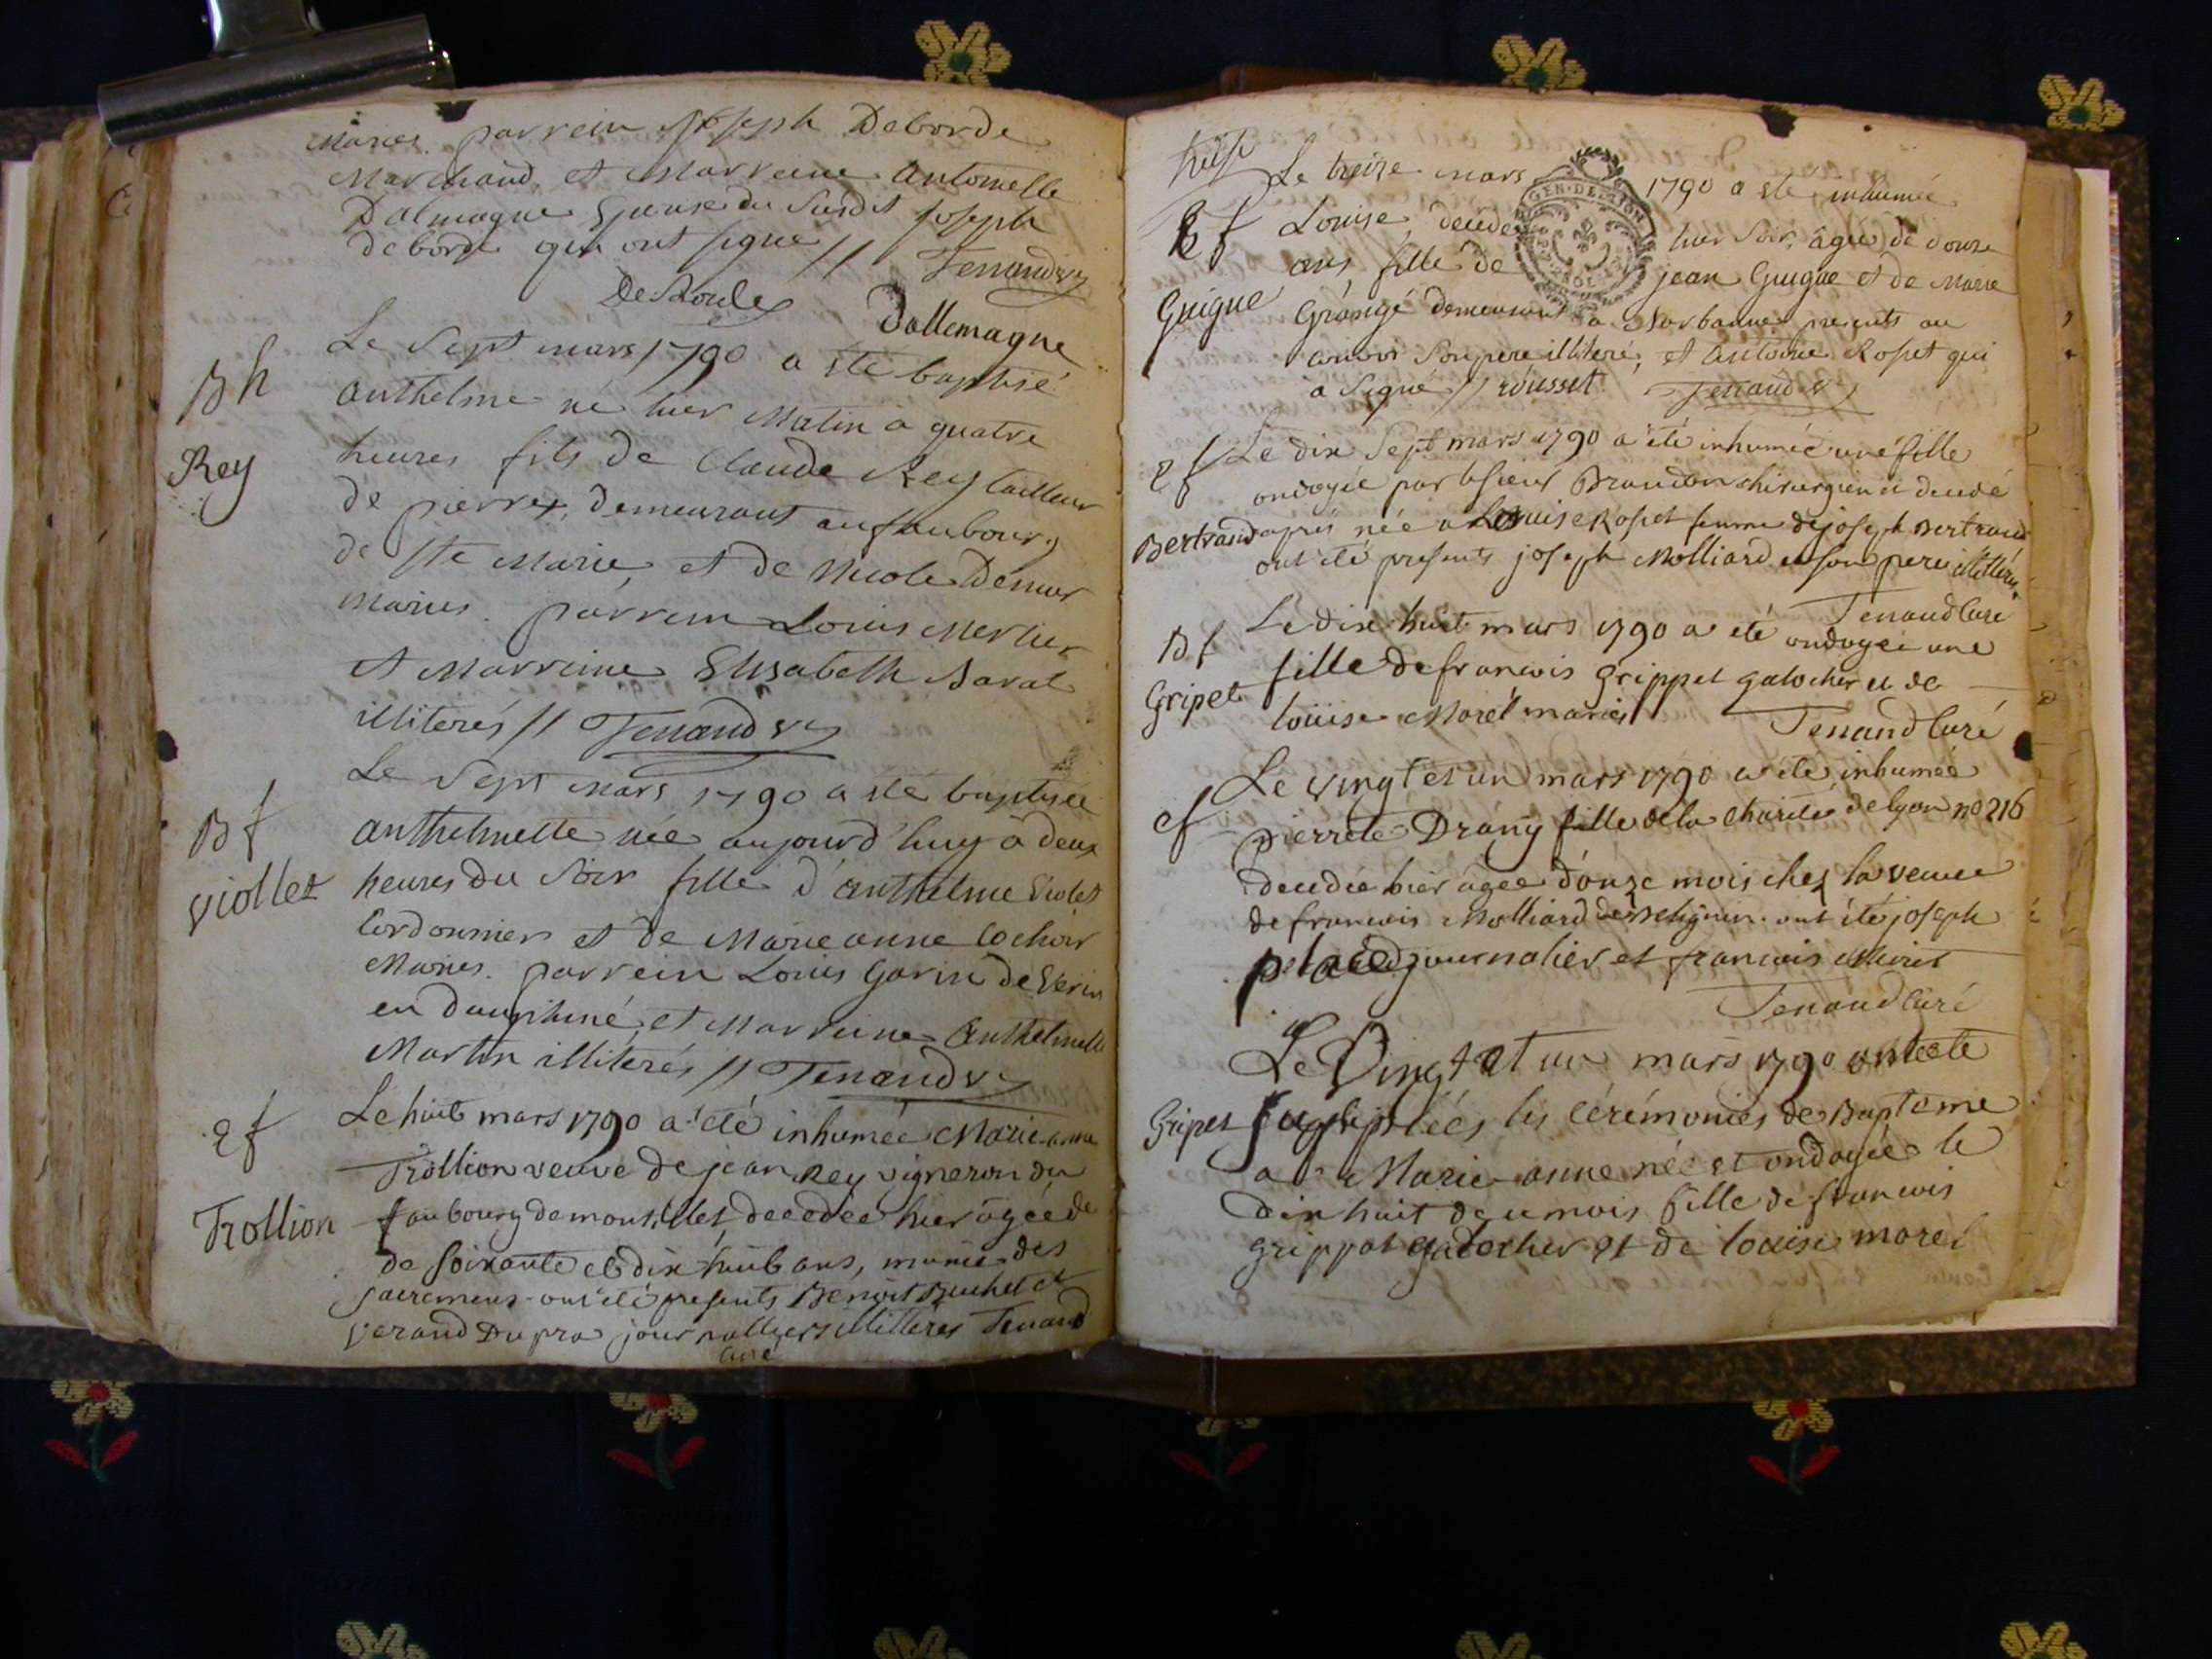 Mariés. parrein Joseph Deborde
Marchand, et Marreine Antoinette
Dalmagne Epouse du Susdit Joseph
deborde qui ont signé // Tenand vre
Dallemagne
Bh
Rey
Le Sept mars 1790 a eté baptisé
Anthelme né hier Matin à quatre
heures fils de Claude Rey tailleur
de pierres, demeurant au faubourg
de Ste Marie, et de Nicole Démur
Mariés. parrein Louis Merlier
et Marreine Elisabeth Savat
illiterés // Tenand vre
Bf
Viollet
Le Sept Mars 1790 a eté baptisée
Anthelmette née aujourd'huy à deux
heures du Soir fille d'Anthelme Violet
Cordonnier et de Marieanne Cochoir
Mariés. parrein Louis Garin de Verin
en dauphiné, et Marreine Anthelmette
Martin illiterés // Tenand vre
Ef
Trollion
Le huit mars 1790 a été inhumée Marie anne
Trollion veuve de jean Rey vigneron du
faubourg de monsilles decedée hier âgée de
de soixante et dix huit ans, munie des
sacremens - ont été presents Benoit Buchet et
verand Dupra journalliers illitérés Tenand
Curé
Ef
Guigue
Le treize mars 1790 a eté inhumée
Louise, decedé hier Soir, âgée de douze
ans, fille de jean Guigue et de Marie
Grangé demeurant a Narbanne presents au
convoi Son pere illiteré, et Antoine Roset qui
à Signé // rousset Tenand vre
Ef
Bertrand
Le dix Sept mars 1790 a été inhumée une fille
ondoyée par le sieur Brandon chirurgien et decedé
après née a Louise Roset femme de joseph Bertrand
ont été presents joseph Molliard et son pere illitérés
Tenand Curé
Bf
Gripet
Le dix huit mars 1790 a eté ondoyée une
fille de francois Grippet galocher et de
loüise Morel mariés Tenand Curé
Ef
Le vingt et un mars 1790 a été inhumée
pierrete Drany fille de la charité de lyon no 216
decedée hier agée d'onze mois chez la veuve
de francois Molliard de ont été joseph
journalier et francois
Tenand Curé
Gripet
Le Vingt et un mars 1790 ont eté
suppléées les Cérémonies de Baptême
a Marie-anne née et ondoyée le
dix huit de ce mois fille de francois
grippat galocher et de louise morel